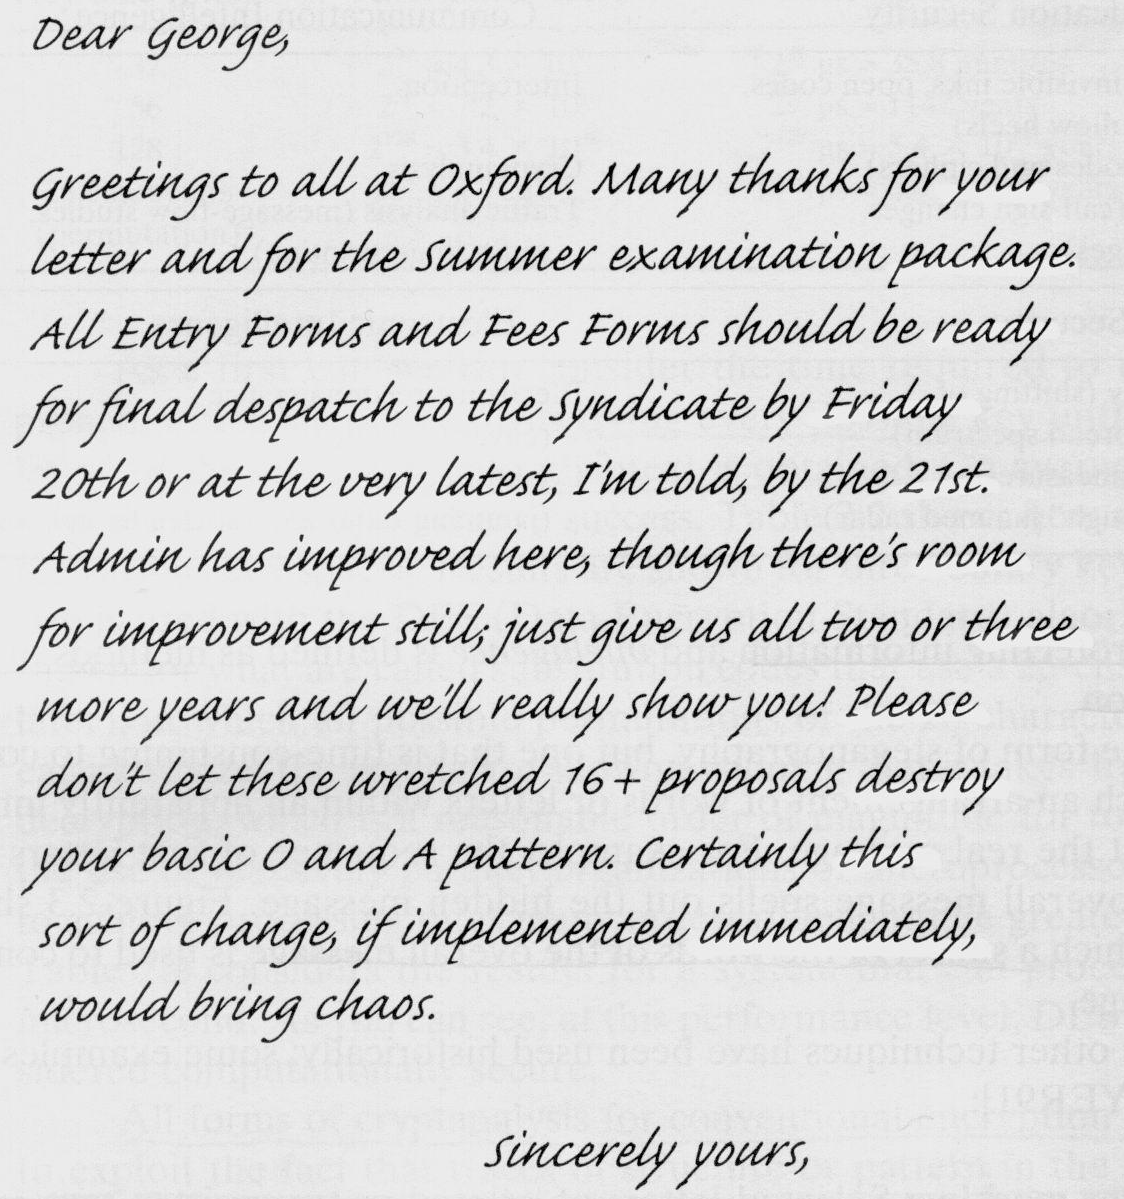 Dear George,
Greetings to all at Oxford. Many thanks for your
letter and for the Summer examination package.
All Entry Forms and Fees Forms should be ready
for final despatch to the Syndicate by Friday
20th or at the very latest, I'm told, by the 21st.
Admin has improved here, though there's room
for improvement still; just give us all two or three
more years and we'll really show you! Please
don't let these wretched 16+ proposals destroy
your basic O and A pattern. Certainly this
sort of change, if implemented immediately,
would bring chaos.
Sincerely yours,